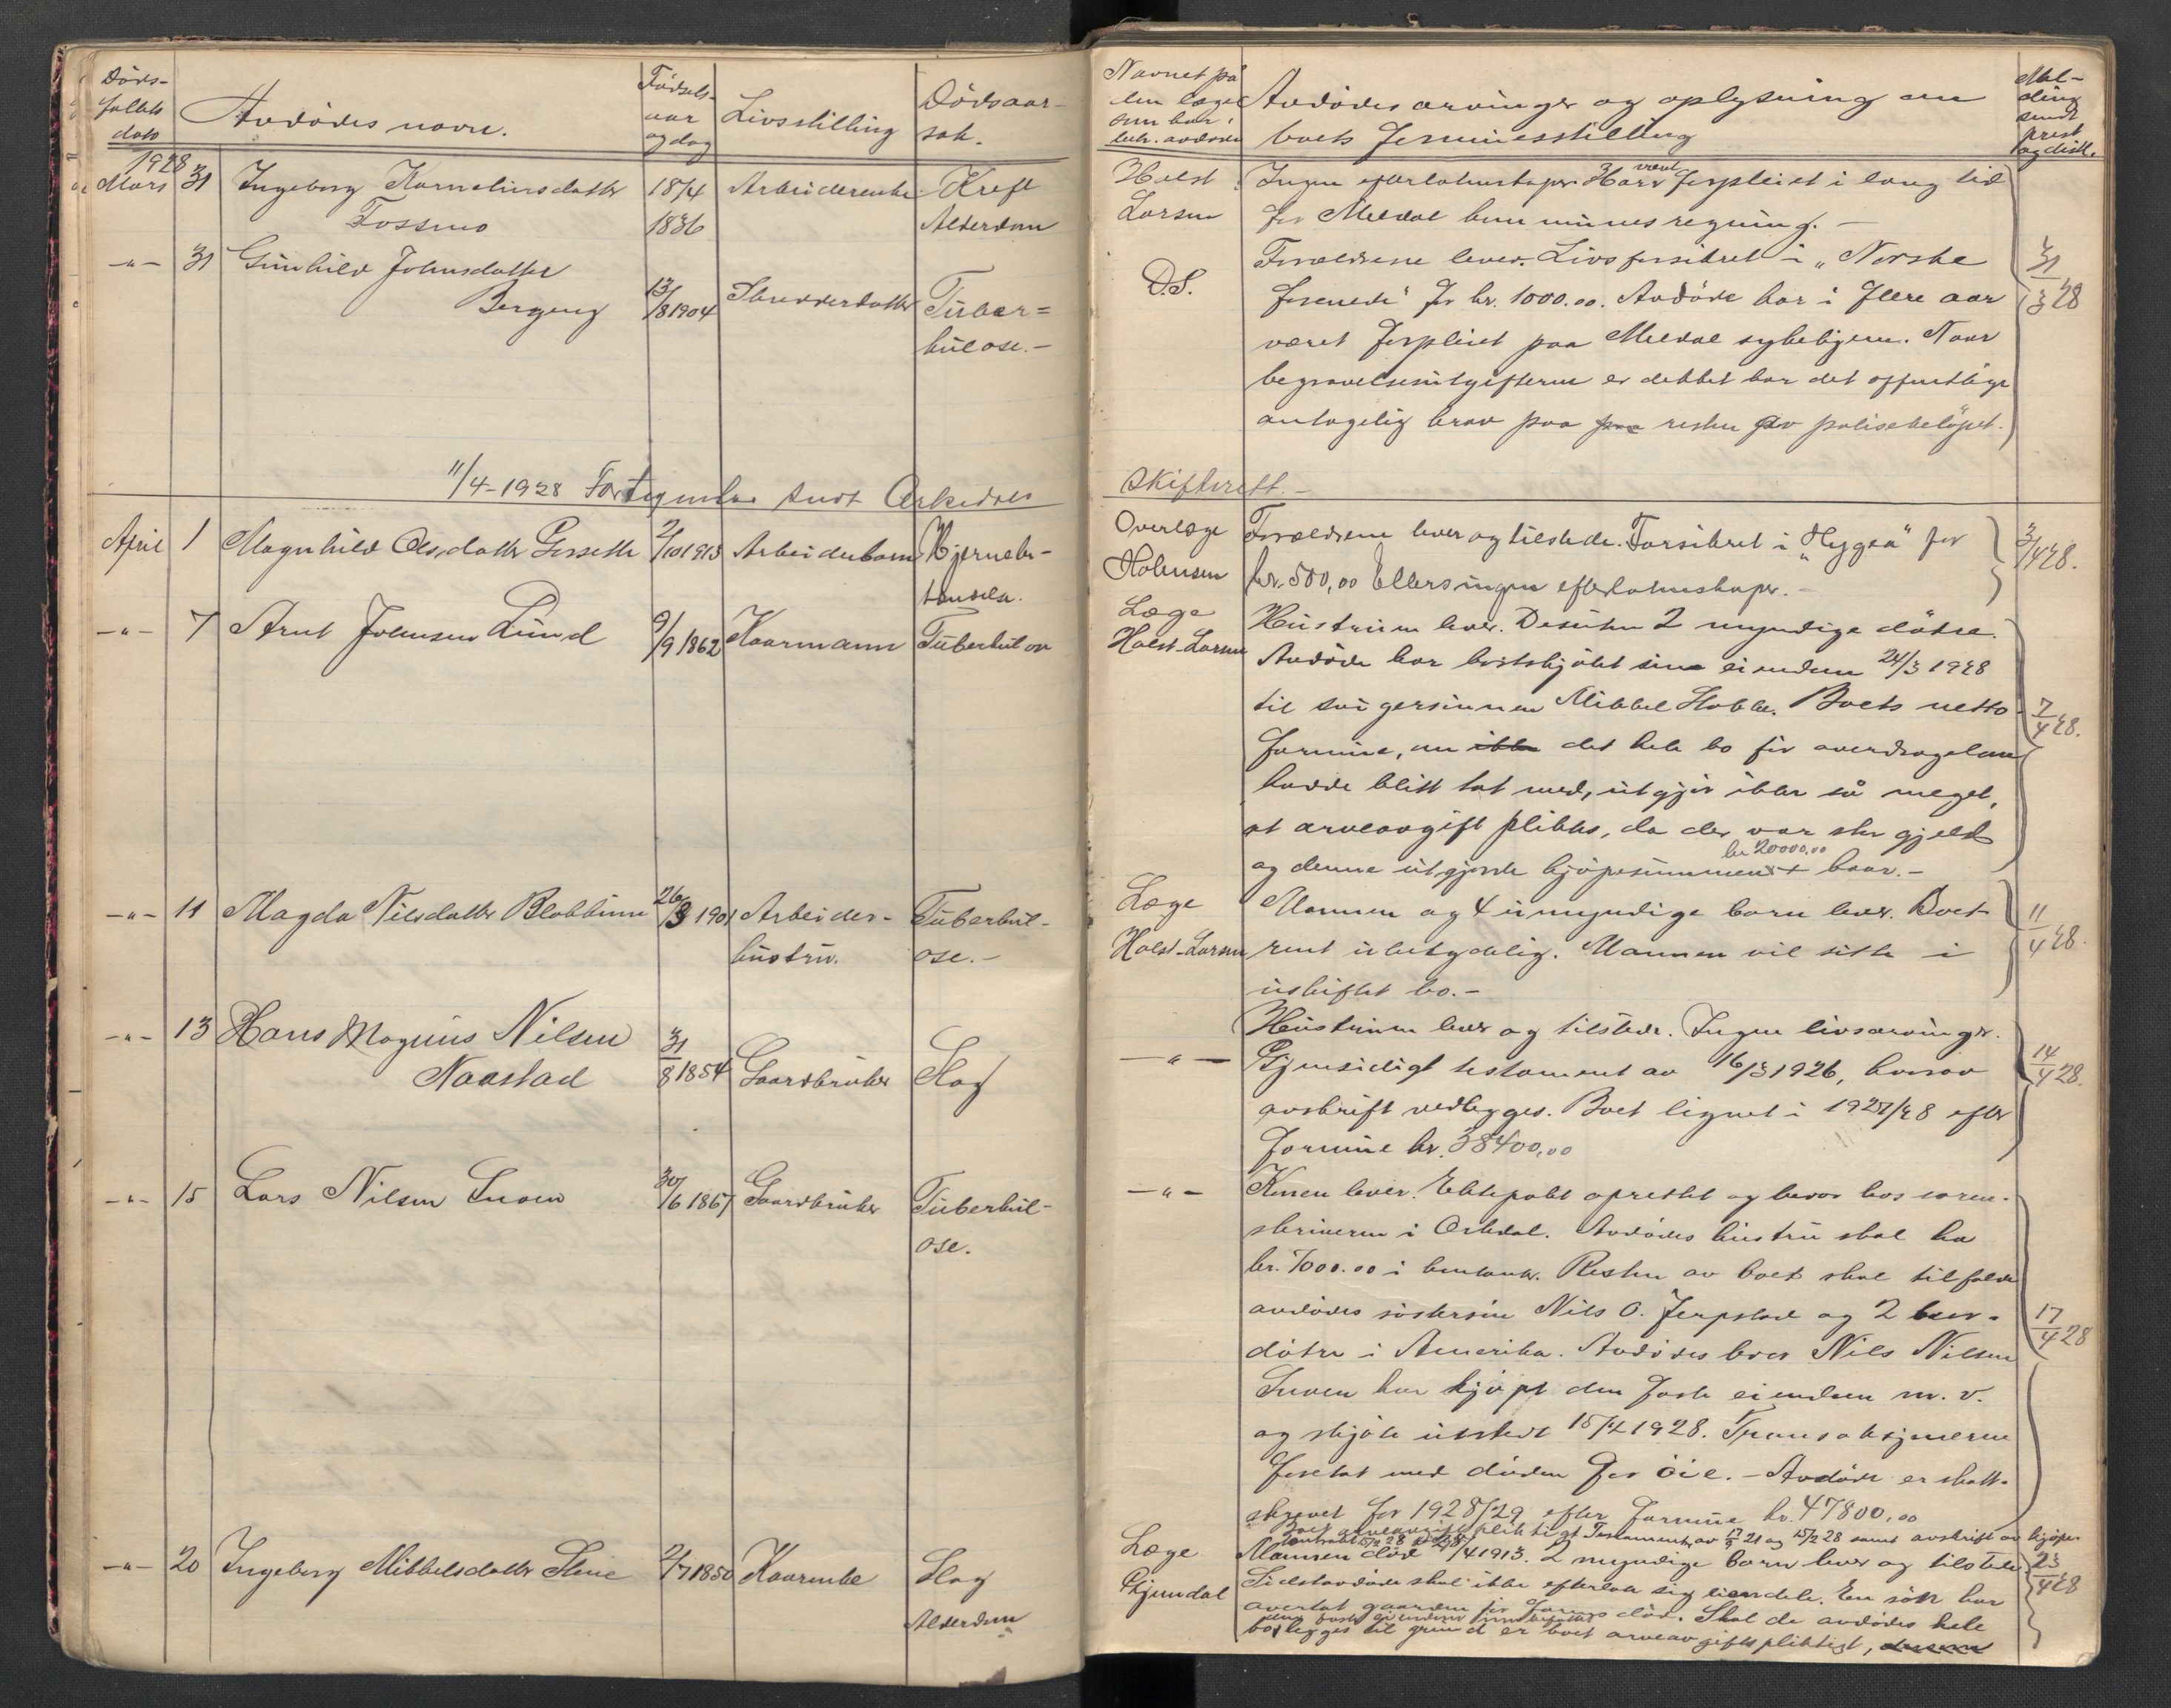 Døds-
faldets
dato
Avdødes navn.
Fødsels-
aar
og dag
Livsstilling
Dødsaar-
sak.
1928
Mars 31 Ingeborg Korneliusdatter 18/4 Arbeiderenke Kreft
Fossmo 1836 Alderdom
-"- 31 Gunhild Johnsdatter
Bergeng 13/8 1904 Skredderdatter Tuber=
kulose.-
11/4-1928 Fortegnelse sendt Orkedal
April 1 Magnhild Olsdatter Gisseth 2/10 1913 Arbeiderbarn Hjernebe-
tendelse.
-"- 7 Arnt Johnsen Lund 9/9 1862 Kaarmann Tuberkulose
-"- 11 Magda Nilsdatter Blokkum 26/3 1901 Arbeider- Tuberkul-
hustru. ose.-
-"- 13 Hans Magnus Nilsen
Naastad 31/8 1854 Gaardbruker Slag
-"- 15 Lars Nilsen Snoen 30/6 1867 Gaardbruker Tuberkul-
ose.
-"- 20 Ingeborg Mikkelsdatter 2/7 1850 Kaarenke Slag
Alderdom
Navnet på
den læge
som har
beh. avdøde
Avdødes arvinger og oplysning om
boets formuesstilling
Mel-
ding
sendt
prest
og distl.
Holst Ingen efterladenskaper. Har vært forpleiet i lang tid
Larsen for Meldal kommunes regning.-
Forældrene lever. Livsforsikret i "Norske
D.S. forenede" for kr. 1000.00. Avdøde har i flere aar 31/3 28
været forpleiet paa Meldal sykehjem. Naar
begravelsesutgifterne er dekket har det offentlige
antagelig krav paa paa resten av polisebeløpet.
Skifterett.-
Overlæge Forældrene lever og tilstede. Forsikret i "Hygea" for 3/4 28.
Holmsen kr. 500,00 Ellers ingen efterladenskaper.-
Læge Hustruen lever. Desuten 2 myndige døtre.
Holst-Larsen Avdøde har bortskjøtet sine eiendom 24/3 1928
til svigersønnen Mikkel Hokke. Boets netto- 7/4 28.
formue, om ikke det hele bo før overdragelsen
hadde blitt tat med, utgjør ikke så meget,
at arveavgift pliktes, da der var stor gjeld
kr 20000,00
og denne utgjorde kjøpesummen + kaar.-
Læge Mannen og 4 umyndige barn lever. Boet 11/4 28.
Holst-Larsen rent ubetydelig. Mannen vil sitte i
uskiftet bo.-
Hustruen lever og tilstede. Ingen livsarvinger.
-"- Gjensidigt testament av 16/3 1926, hvorav 14/4 28.
avskrift vedlegges. Boet lignet i 1927/28 efter
formue kr. 38400,00
-"- Konen lever. Ektepakt oprettet og bevar hos soren-
skriveren i Orkdal. Avdødes hustru skal ha
kr. 7000.00 i kontanter. Resten av boet skal tilfalde
avdødes søstersøn Nils O. Jerpstad og 2 bror- 17/4 28
døtre i Amerika. Avdødes bror Nils Nilsen
Snoen har kjøpt den faste eiendom m.v.
og skjøte utstedt 15/2 1928. Transaksjonerne
foretat med døden for øie.- Avdøde er skatt-
skrevet for 1928/29 efter formue kr. 47800,00
Boet arveavgiftspliktigt. Testamenter av 21 og 15/2 28 samt avskrift av kjøpe-
kontrakt 15/2 28
Læge Mannen død 1913. 2 myndige barn lever og tilstede. 23/4 28
Gjendal Sidstavdøde skal ikke efterlate sig eiendele. En søn har
overtat gaarden før farens død. Skal de avdødes hele
bo legges til grund er boet arveavgiftspliktigt,